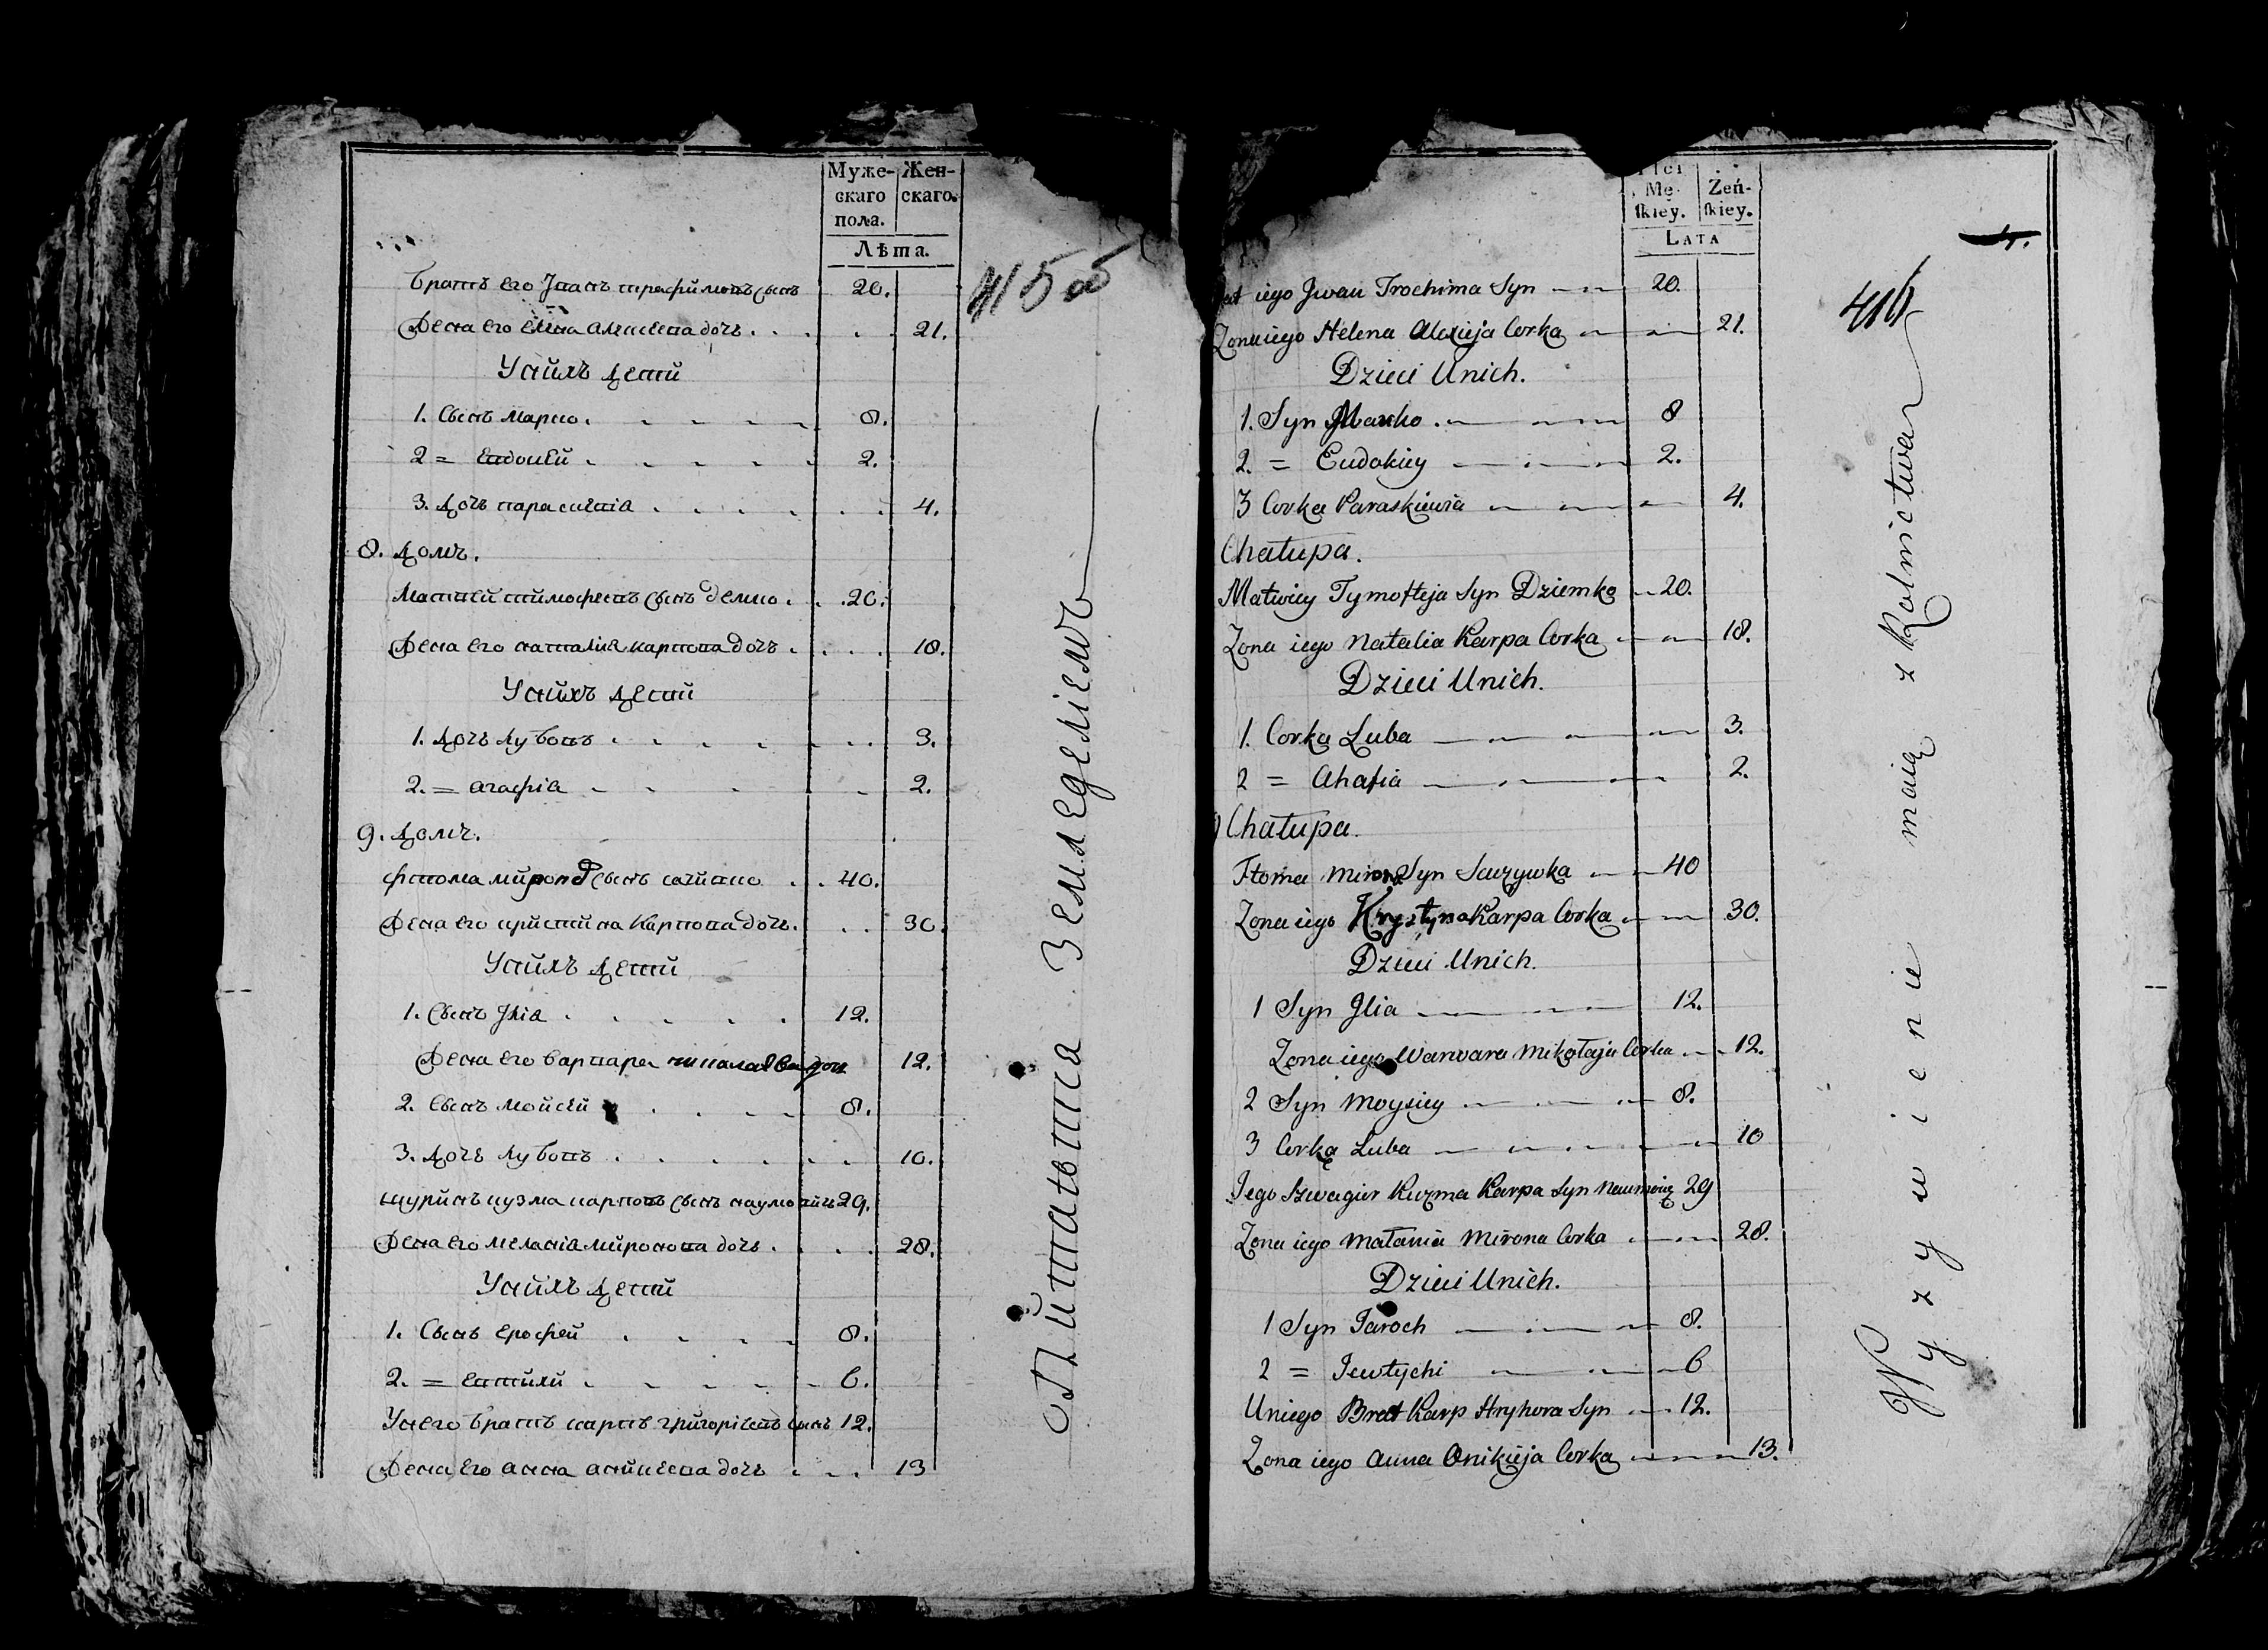 Муже-
скаго
пола.
Жен-
скаго.
Лѣта.
братъ его Іванъ трафимовъ сынъ 20.
Жена его елена алексеева дочь . . . . 21.
Унихъ дети
1. Сынъ марко . 8.
2 = евдокей . 2.
3. дочь параскевіа . 4.
8. домъ.
Матвей тимофеевъ сынъ демко . 20.
Жена его наталиа карпова дочь . 18.
Унихъ дети
1. дочь любовъ . 3.
2. = агафіа . 2.
9. домъ.
фтома миронов сынъ 40.
Жена его кристина карпова дочь . 30.
Унихъ дети
1. Сынъ Ілиа . 12.
Жена его варвара николаева доч 12.
2. Сынъ мойсей . 8.
3. дочь любовъ . 10.
щуринъ кузма карповъ сынъ наумовичь 29.
Жена его меланіа миронова дочь . 28.
Унихъ дети
1. Сынъ ерофей . 8.
2. = евтихи . 6.
Унего братъ карпъ григоріевъ сынъ 12.
Жена его анна аникеева дочь . . . 13
415 об
Земледелiемъ
Mę-
skiey.
Żeń-
skiey.
LATA
iego Jwan Trochima Syn 20.
Zona iego Helena Alexieja Corka 21.
Dzieci Unich.
1. Syn Marko . 8
2. = Eudokiey 2.
3 Corka Paraskiewia 4.
Chałupa.
Matwiey Tymofteja Syn Dziemko 20.
Zona iego Natalia Karpa Corka 18.
Dzieci Unich.
1. Corka Luba 3.
2 = Ahafia 2.
Chałupa.
Ftoma Mirona Syn Saczywka 40
Zona iego Krystyna Karpa Corka 30.
Dzieci Unich.
1 Syn Jlia 12.
Zona iego Warwara Mikołaja Corka 12.
2 Syn Moysiey 8.
3 Corka Luba 10
Jego Szwagier Kuzma Karpa Syn Naumowicz 29
Zona iego Małania Mirona Corka 28.
Dzieci Unich.
1 Syn Jaroch 8.
2 = Jewtychi 6
Uniego Brat Karp Hryhora Syn 12.
Zona iego Anna Onikieja Corka 13.
416
Wyzywienie maią z Rolnictwa